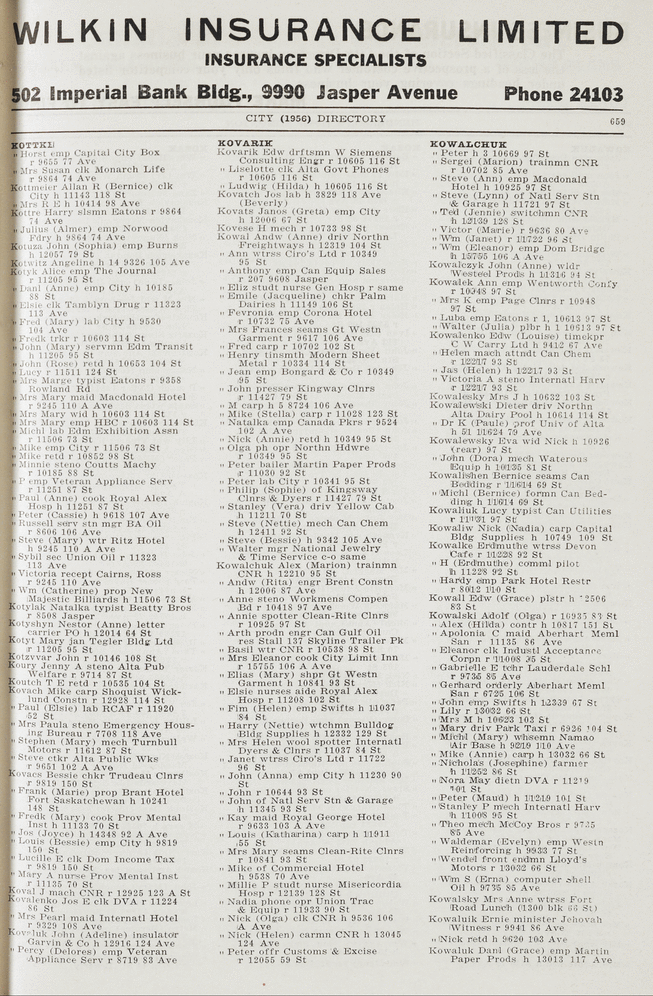 WILKIN INSURANCE LIMITED
INSURANCE SPECIALISTS
502 Imperial Bank Bldg., 9990 Jasper Avenue Phone 24103
CITY (1956) DIRECTORY 659
KOTTKE
" Horst emp Capital City Box
r 9655 77 Ave
" Mrs Susan clk Monarch Life
r 9864 74 Ave
Kottmeier Allan R (Bernice) clk
City h 11143 118 St
" Mrs R E h 10414 98 Ave
Kottre Harry slsmn Eatons r 9864
74 Ave
" Julius (Almer) emp Norwood
Fdry h 9864 74 Ave
Kotuza John (Sophia) emp Burns
h 12057 79 St
Kotwitz Angeline h 14 9326 105 Ave
Kotyk Alice emp The Journal
r 11205 95 St
" Dani (Anne) emp City h 10185
88 St
" Elsie clk Tamblyn Drug r 11323
113 Ave
" Fred (Mary) lab City h 9530
104 Ave
" Fredk trkr r 10603 114 St
" John (Mary) servmn Edm Transit
h 11205 95 St
" John (Rose) retd h 10653 104 St
" Lucy r 11511 124 St
" Mrs Marge typist Eatons r 9358
Rowland Rd
" Mrs Mary maid Macdonald Hotel
r 9245 110 A Ave
" Mrs Mary wid h 10603 114 St
" Mrs Mary emp HBC r 10603 114 St
" Michl lab Edm Exhibition Assn
r 11506 73 St
" Mike emp City r 11506 73 St
" Mike retd r 10852 98 St
" Minnie steno Coutts Machy
r 10185 88 St
" P emp Veteran Appliance Serv
r 11251 87 St
" Paul (Anne) cook Royal Alex
Hosp h 11251 87 St
" Peter (Cassie) h 9618 107 Ave
" Russell serv stn mgr BA Oil
r 8606 106 Ave
" Steve (Mary) wtr Ritz Hotel
h 9245 110 A Ave
" Sybil sec Union Oil r 11323
113 Ave
" Victoria recept Cairns, Ross
r 9245 110 Ave
" Wm (Catherine) prop New
Majestic Billiards h 11506 73 St
Kotylak Natalka typist Beatty Bros
r 8508 Jasper
Kotyshyn Nestor (Anne) letter
carrier PO h 12014 64 St
Kotyt Mary jan Tegler Bldg Ltd
r 11205 95 St
Kotzvar John r 10146 108 St
Koury Jenny A steno Alta Pub
Welfare r 9714 87 St
Koutch T E retd r 10535 104 St
Kovach Mike carp Shoquist Wick-
lund Constn r 12928 114 St
" Paul (Elsie) lab RCAF r 11920
52 St
" Mrs Paula steno Emergency Hous-
ing Bureau r 7708 118 Ave
" Stephen (Mary) mech Turnbull
Motors r 11612 87 St
" Steve ctkr Alta Public Wks
r 9651 102 A Ave
Kovacs Bessie chkr Trudeau Clnrs
r 9819 150 St
" Frank (Marie) prop Brant Hotel
Fort Saskatchewan h 10241
148 St
" Fredk (Mary) cook Prov Mental
Inst h 11133 70 St
" Jos (Joyce) h 14348 92 A Ave
" Louis (Bessie) emp City h 9819
150 St
" Lucille E clk Dom Income Tax
r 9819 150 St
" Mary A nurse Prov Mental Inst
r 11135 70 St
Koval J mach CNR r 12925 123 A St
Kovalenko Jos E clk DVA r 11224
86 St
" Mrs Pearl maid Internatl Hotel
r 9329 108 Ave
John (Adeline) insulator
Garvin & Co h 12916 124 Ave
" Percy (Delores) emp Veteran
Appliance Serv r 8719 83 Ave
KOVARIK
Kovarik Edw drftsmn W Siemens
Consulting Engr r 10605 116 St
" Liselotte clk Alta Govt Phones
r 10605 116 St
" Ludwig (Hilda) h 10605 116 St
Kovatch Jos lab h 3829 118 Ave
(Beverly)
Kovats Janos (Greta) emp City
h 12006 67 St
Kovese H mech r 10733 98 St
Kowal Andw (Anne) driv Northn
Freightways h 12319 104 St
" Ann wtrss Ciro's Ltd r 10349
95 St
" Anthony emp Can Equip Sales
r 207 9608 Jasper
" Eliz studt nurse Gen Hosp r same
" Emile (Jacqueline) chkr Palm
Dairies h 11149 106 St
" Fevronia emp Corona Hotel
r 10732 75 Ave
" Mrs Frances seams Gt Westn
Garment r 9617 106 Ave
" Fred carp r 10702 102 St
" Henry tinsmth Modern Sheet
Metal r 10334 114 St
" Jean emp Bongard & Co r 10349
95 St
" John presser Kingway Clnrs
r 11427 79 St
" M carp h 5 8724 106 Ave
" Mike (Stella) carp r 11028 123 St
" Natalka emp Canada Pkrs r 9524
102 A Ave
" Nick (Annie) retd h 10349 95 St
" Olga ph opr Northn Hdwre
r 10349 95 St
" Peter bailer Martin Paper Prods
r 11030 92 St
" Peter lab City r 10341 95 St
" Philip (Sophie) of Kingsway
Clnrs & Dyers r 11427 79 St
" Stanley (Vera) driv Yellow Cab
h 11211 70 St
" Steve (Nettie) mech Can Chem
h 12411 92 St
" Steve (Bessie) h 9342 105 Ave
" Walter mgr National Jewelry
& Time Service c-o same
Kowalchuk Alex (Marion) trainmn
CNR h 12210 95 St
" Andw (Rita) engr Brent Constn
h 12006 87 Ave
" Anne steno Workmens Compen
Bd r 10418 97 Ave
" Annie spotter Clean-Rite Clnrs
r 10925 97 St
" Arth prodn engr Can Gulf Oil
res Stall 137 Skyline Trailer Pk
" Basil wtr CNR r 10538 98 St
" Mrs Eleanor cook City Limit Inn
r 15755 106 A Ave
" Elias (Mary) shpr Gt Westn
Garment h 10841 93 St
" Elsie nurses aide Royal Alex
Hosp r 11208 102 St
" Fim (Helen) emp Swifts h 11037
84 St
" Harry (Nettie) wtchmn Bulldog
Bldg Supplies h 12332 129 St
" Mrs Helen wool spotter Internatl
Dyers & Clnrs r 11037 84 St
" Janet wtrss Ciro's Ltd r 11722
96 St
" John (Anna) emp City h 11230 90
St
" John r 10644 93 St
" John of Natl Serv Stn & Garage
h 11345 93 St
" Kay maid Royal George Hotel
r 9633 103 A Ave
" Louis (Katharina) carp h 11911
55 St
" Mrs Mary seams Clean-Rite Clnrs
r 10841 93 St
" Mike of Commercial Hotel
h 9538 70 Ave
" Millie P studt nurse Misericordia
Hosp r 12139 128 St
" Nadia phone opr Union Trac
& Equip r 11933 90 St
" Nick (Olga) clk CNR h 9536 106
A Ave
" Nick (Helen) carmn CNR h 13045
124 Ave
" Peter offr Customs & Excise
r 12055 59 St
KOWALCHUK
" Peter h 3 10669 97 St
" Sergei (Marion) trainmn CNR
r 10702 85 Ave
" Steve (Ann) emp Macdonald
Hotel h 10925 97 St
" Steve (Lynn) of Natl Serv Stn
& Garage h 11721 97 St
" Ted (Jennie) switchmn CNR
h 12139 128 St
" Victor (Marie) r 9636 80 Ave
" Wm (Janet) r 11722 96 St
" Wm (Eleanor) emp Dom Bridge
h 15755 106 A Ave
Kowalczyk John (Anne) wldr
Westeel Prods h 11316 94 St
Kowalek Ann emp Wentworth Confy
r 10948 97 St
" Mrs K emp Page Clnrs r 10948
97 St
" Luba emp Eatons r 1, 10613 97 St
" Walter (Julia) plbr h 1 10613 97 St
Kowalenko Edw (Louise) timekpr
C W Carry Ltd h 9412 67 Ave
" Helen mach attndt Can Chem
r 12217 93 St
" Jas (Helen) h 12217 93 St
" Victoria A steno Internatl Harv
r 12217 93 St
Kowalesky Mrs J h 10632 103 St
Kowalewski Dieter driv Northn
Alta Dairy Pool h 10614 114 St
" Dr K (Paule) prof Univ of Alta
h 51 11624 79 Ave
Kowalewsky Eva wid Nick h 10926
(rear) 97 St
" John (Dora) mech Waterous
Equip h 10135 81 St
Kowalishen Bernice seams Can
Bedding r 11614 69 St
" Michl (Bernice) formn Can Bed-
ding h 11614 69 St
Kowaliuk Lucy typist Can Utilities
r 11131 97 St
Kowaliw Nick (Nadia) carp Capital
Bldg Supplies h 10749 109 St
Kowalke Erdmuthe wtrss Devon
Cafe r 11228 92 St
" H (Erdmuthe) comml pilot
h 11228 92 St
" Hardy emp Park Hotel Restr
r 8012 110 St
Kowall Edw (Grace) plstr h 12506
83 St
Kowalski Adolf (Olga) r 10935 83 St
" Alex (Hilda) contr h 10817 151 St
" Apolonia C maid Aberhart Meml
San r 11135 86 Ave
" Eleanor clk Industl Acceptance
Corpn r 11108 95 St
" Gabrielle E tchr Lauderdale Schl
r 9735 85 Ave
" Gerhard orderly Aberhart Meml
San r 6725 106 St
" John emp Swifts h 12339 67 St
" Lily r 13032 66 St
" Mrs M h 10623 103 St
" Mary driv Park Taxi r 6926 104 St
" Michl (Mary) whsemn Namao
Air Base h 9219 110 Ave
" Mike (Annie) carp h 13032 66 St
" Nicholas (Josephine) farmer
h 11252 86 St
" Nora May dietn DVA r 11219
101 St
" Peter (Maud) h 11219 101 St
" Stanley P mech Internatl Harv
h 11008 95 St
" Theo mech McCoy Bros r 9735
85 Ave
" Waldemar (Evelyn) emp Westn
Reinforcing h 9933 77 St
" Wendel front endmn Lloyd's
Motors r 13032 66 St
" Wm S (Erna) computer Shell
Oil h 9735 85 Ave
Kowalsky Mrs Anne wtrss Fort
Road Lunch (1300 blk 66 St)
Kowaluik Ernie minister Jehovah
Witness r 9941 86 Ave
" Nick retd h 9620 103 Ave
Kowaluk Danl (Grace) emp Martin
Paper Prods h 13013 117 Ave